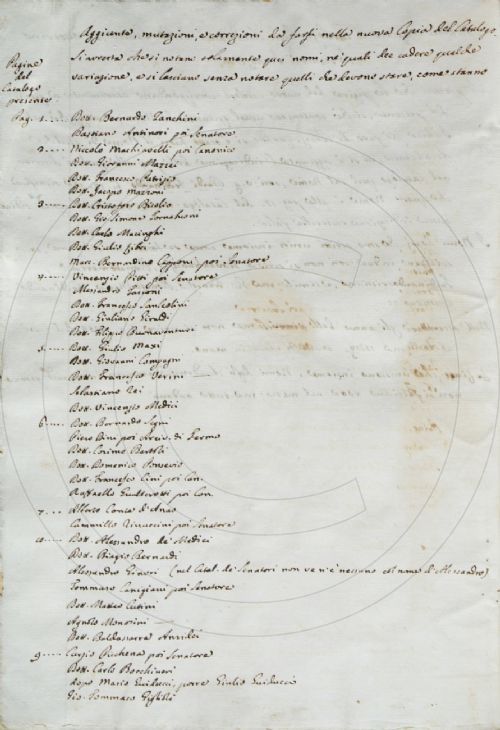 Aggiunte, mutazioni, e correzioni da farsi nella nuova Copia del Catalogo.
Pagine del Catalogo presente
Si avverta che si notano solamente quei nomi, ne' quali dee cadere qualche
variazione, e si lasciano senza notare quelli che devono stare, come stanno
Pag. 1.... Dott. Bernardo Zanchini
Bastiano Antinori poi Senatore
2.... Niccolò Machiavelli poi Canonico
Dott. Giovanni Mazzei
Dott. Francesco
Dott. Jacopo Mazzoni
3.... Dott. Cristofano
Dott. Gio: Simone Tornabuoni
Dott. Carlo Macinghi
Dott. Giulio Libri
Marc. Bernardino Capponi poi Senatore
4.... Vincenzio Pitti poi Senatore
Alessandro
Dott. Francesco Sanleolini
Dott. Giuliano Giraldi
Dott. Filippo Buonaventuri
5.... Dott. Giulio Mazi
Dott. Giovanni Compagni
Dott. Francesco Verini
Sebastiano
Dott. Vincenzio Medici
6.... Dott. Bernardo Segni
Piero Dini poi Arciv. di Fermo
Dott. Cosimo Bartoli
Dott. Domenico Bonsevio
Dott. Francesco Cini poi Can.
Raffaello Gualterotti poi Can.
7.... Alberto Conte d'
Cammillo Rinuccini poi Senatore
Dott. Alessandro de' Medici
Dott. Biagio Bernardi
Alessandro (nel Catal. de' Senatori non ve n'è nessuno col nome d'Alessandro)
Tommaso Canigiani poi Senatore
Dott. Matteo Cutini
Agnolo
Dott. Baldassarre
9.... Curzio Pichena poi Senatore
Dott. Carlo Bocchineri
dopo Mario Guiducci, porre Giulio Guiducci
Gio. Tommaso